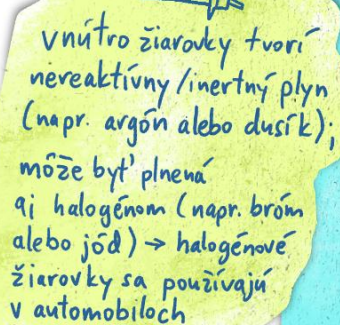 vnútro žiarovky tvorí
nereaktívny/inertný plyn
(napr. argón alebo dusík);
môže byť plnená
aj halogénom (napr. bróm
alebo jód) → halogénové
žiarovky sa používajú
v automobiloch